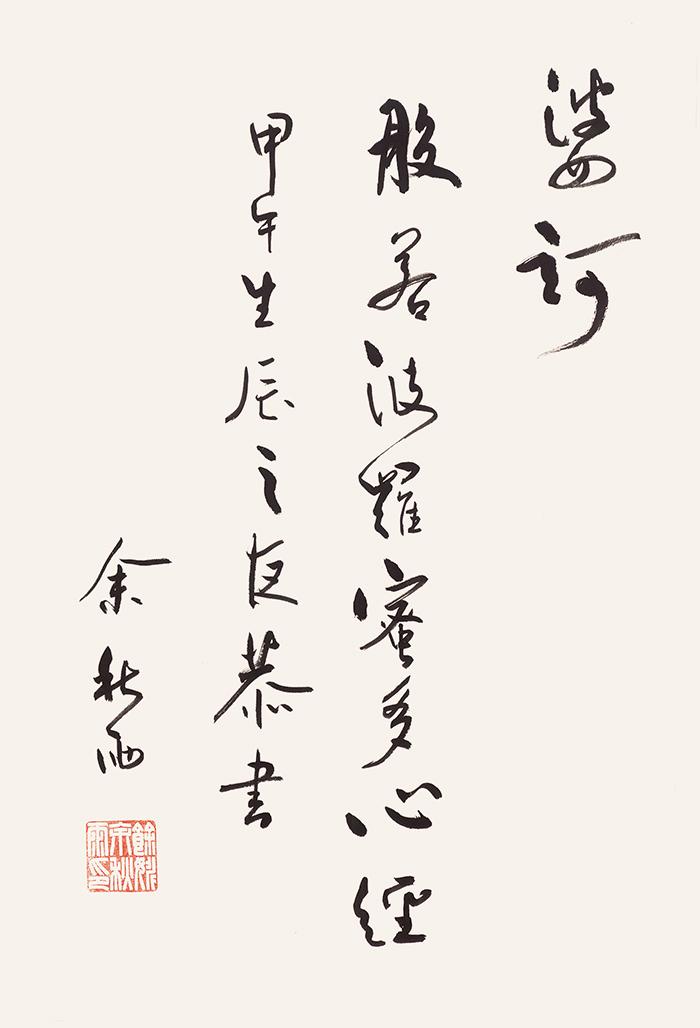 婆訶
般若波羅蜜多心經
甲午生辰之夜恭書
余秋雨
餘姚余秋雨印